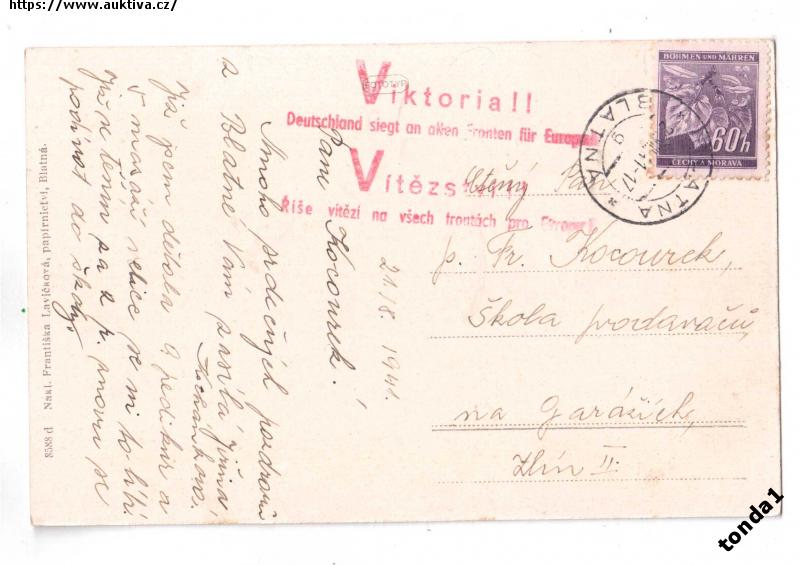 https://www.auktiva.cz/
Viktoria!!
FOTOTYP
Deutschland siegt an allen Fronten für Europa!!
Vítězství!!
Říše vítězí na všech frontách pro Evropu!!
BÖHMEN UND MÄHREN
60h
ČECHY A MORAVA
BLATNA
BLATNÁ
Pane Kocourek!
21/8. 1941.
Mnoho srdečných pozdravů
z Blatné Vám zasílá Jiřina
Já jsem dělala pedikur a
v masáži sice se mi to líbí
Již se těším na 2. p. znovu se
podívat do školy.
Ctěný Pan
p. Fr. Kocourek,
Škola prodavačů
na Garážích,
Zlín II.
8588 d Nakl. Františka Lavičková, papírnictví, Blatná.
tonda1